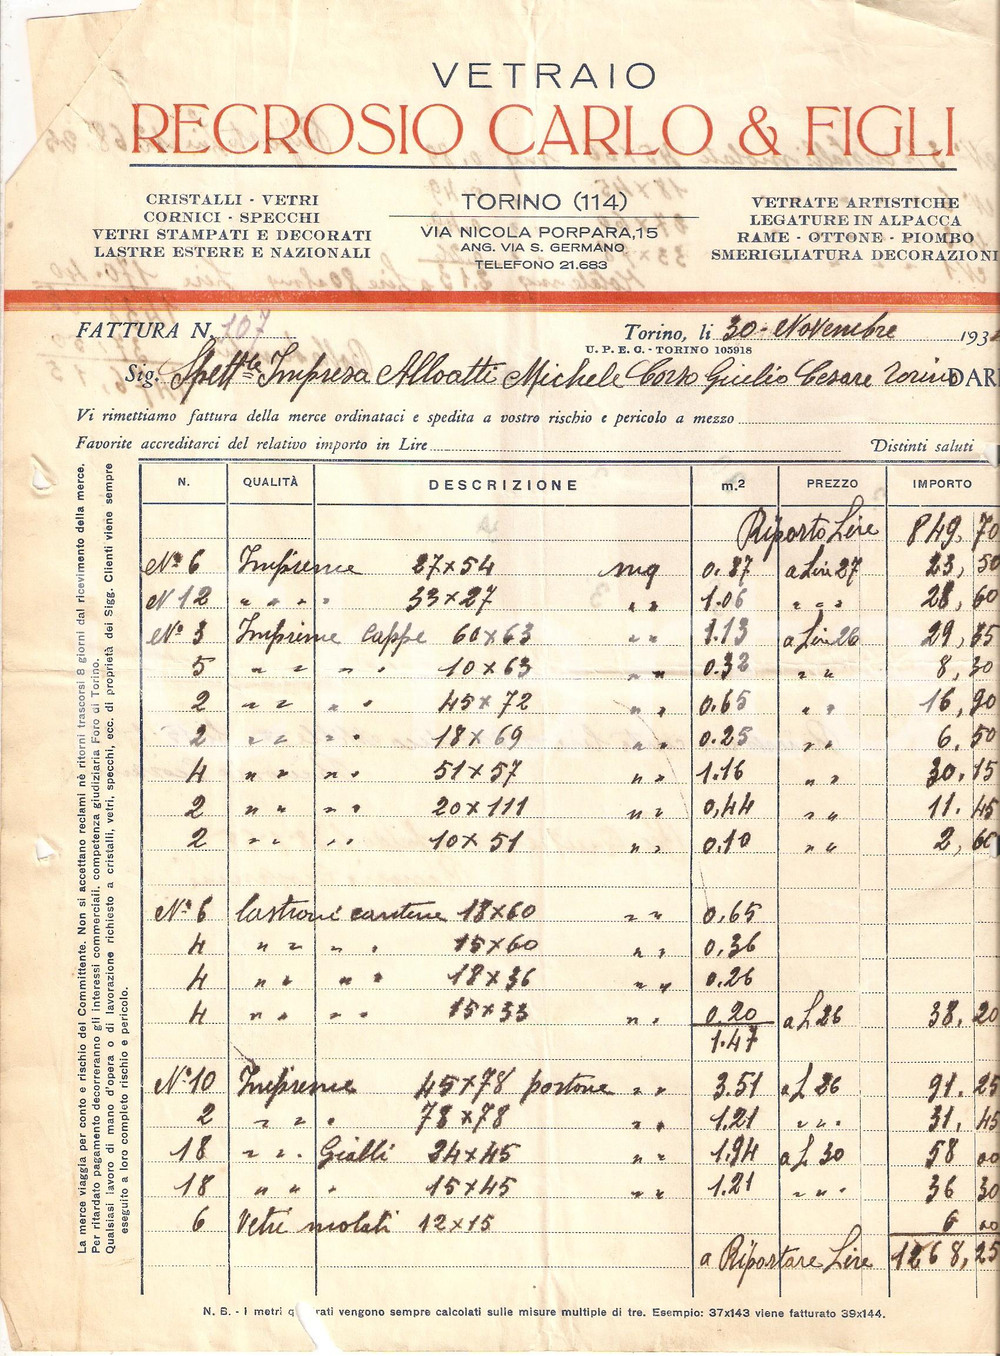 VETRAIO
RECROSIO CARLO & FIGLI
CRISTALLI - VETRI
CORNICI - SPECCHI
VETRI STAMPATI E DECORATI
LASTRE ESTERE E NAZIONALI
TORINO (114)
VIA NICOLA PORPARA, 15
ANG. VIA S. GERMANO
TELEFONO 21.683
VETRATE ARTISTICHE
LEGATURE IN ALPACCA
RAME - OTTONE - PIOMBO
SMERIGLIATURA DECORAZIONI
FATTURA N. 107
Torino, li 30 - Novembre 193
U. P. E. C. - TORINO 105918
Sig. Spett.le Impresa Alloatti Michele Corso Giulio Cesare Torino DARE
Vi rimettiamo fattura della merce ordinataci e spedita a vostro rischio e pericolo a mezzo
Favorite accreditarci del relativo importo in Lire Distinti saluti
N. QUALITÀ DESCRIZIONE m.² PREZZO IMPORTO
Riporto Lire 849,70
N° 6 Imprime 27×54 mq 0.87 a Lire 27 23,50
N 12 " " " " 33×27 " " 1.06 " " " 28,60
N° 3 Imprime Cappe 60×63 " " 1.13 a Lire 26 29,35
5 " " " " 10×63 " " 0.32 " " 8,30
2 " " " " 45×72 " " 0.65 " " 16,90
2 " " " " 18×69 " " 0.25 " " 6,50
4 " " " " 51×57 " " 1.16 " " 30,15
2 " " " " 20×111 " " 0,44 " " 11.45
2 " " " " 10×51 " " 0.10 " " 2,60
N° 6 lastroni cantine 18×60 " " 0.65
4 " " " " 15×60 " " 0.36
4 " " " " 18×36 " " 0.26
4 " " " " 15×33 " " 0.20 a L 26 38.20
1.47
N° 10 Imprime 45×78 portone " " 3.51 a L 26 91.25
2 " " " 78×78 " " 1.21 " " " 31,45
18 " " " Gialli 24×45 " " 1.94 a L 30 58 00
18 " " " 15×45 " " 1.21 " " " 36 30
6 Vetri molati 12×15 6 00
a Riportare Lire 1268,25
N. B. - I metri q rati vengono sempre calcolati sulle misure multiple di tre. Esempio: 37x143 viene fatturato 39x144.
La merce viaggia per conto e rischio del Committente. Non si accettano reclami nè ritorni trascorsi 8 giorni dal ricevimento della merce.
Per ritardato pagamento decorreranno gli interessi commerciali. competenza giudiziaria Foro di Torino.
Qualsiasi lavoro di mano d'opera o di lavorazione richiesto a cristalli, vetri, specchi, ecc. di proprietà dei Sigg. Clienti viene sempre
eseguito a loro completo rischio e pericolo.